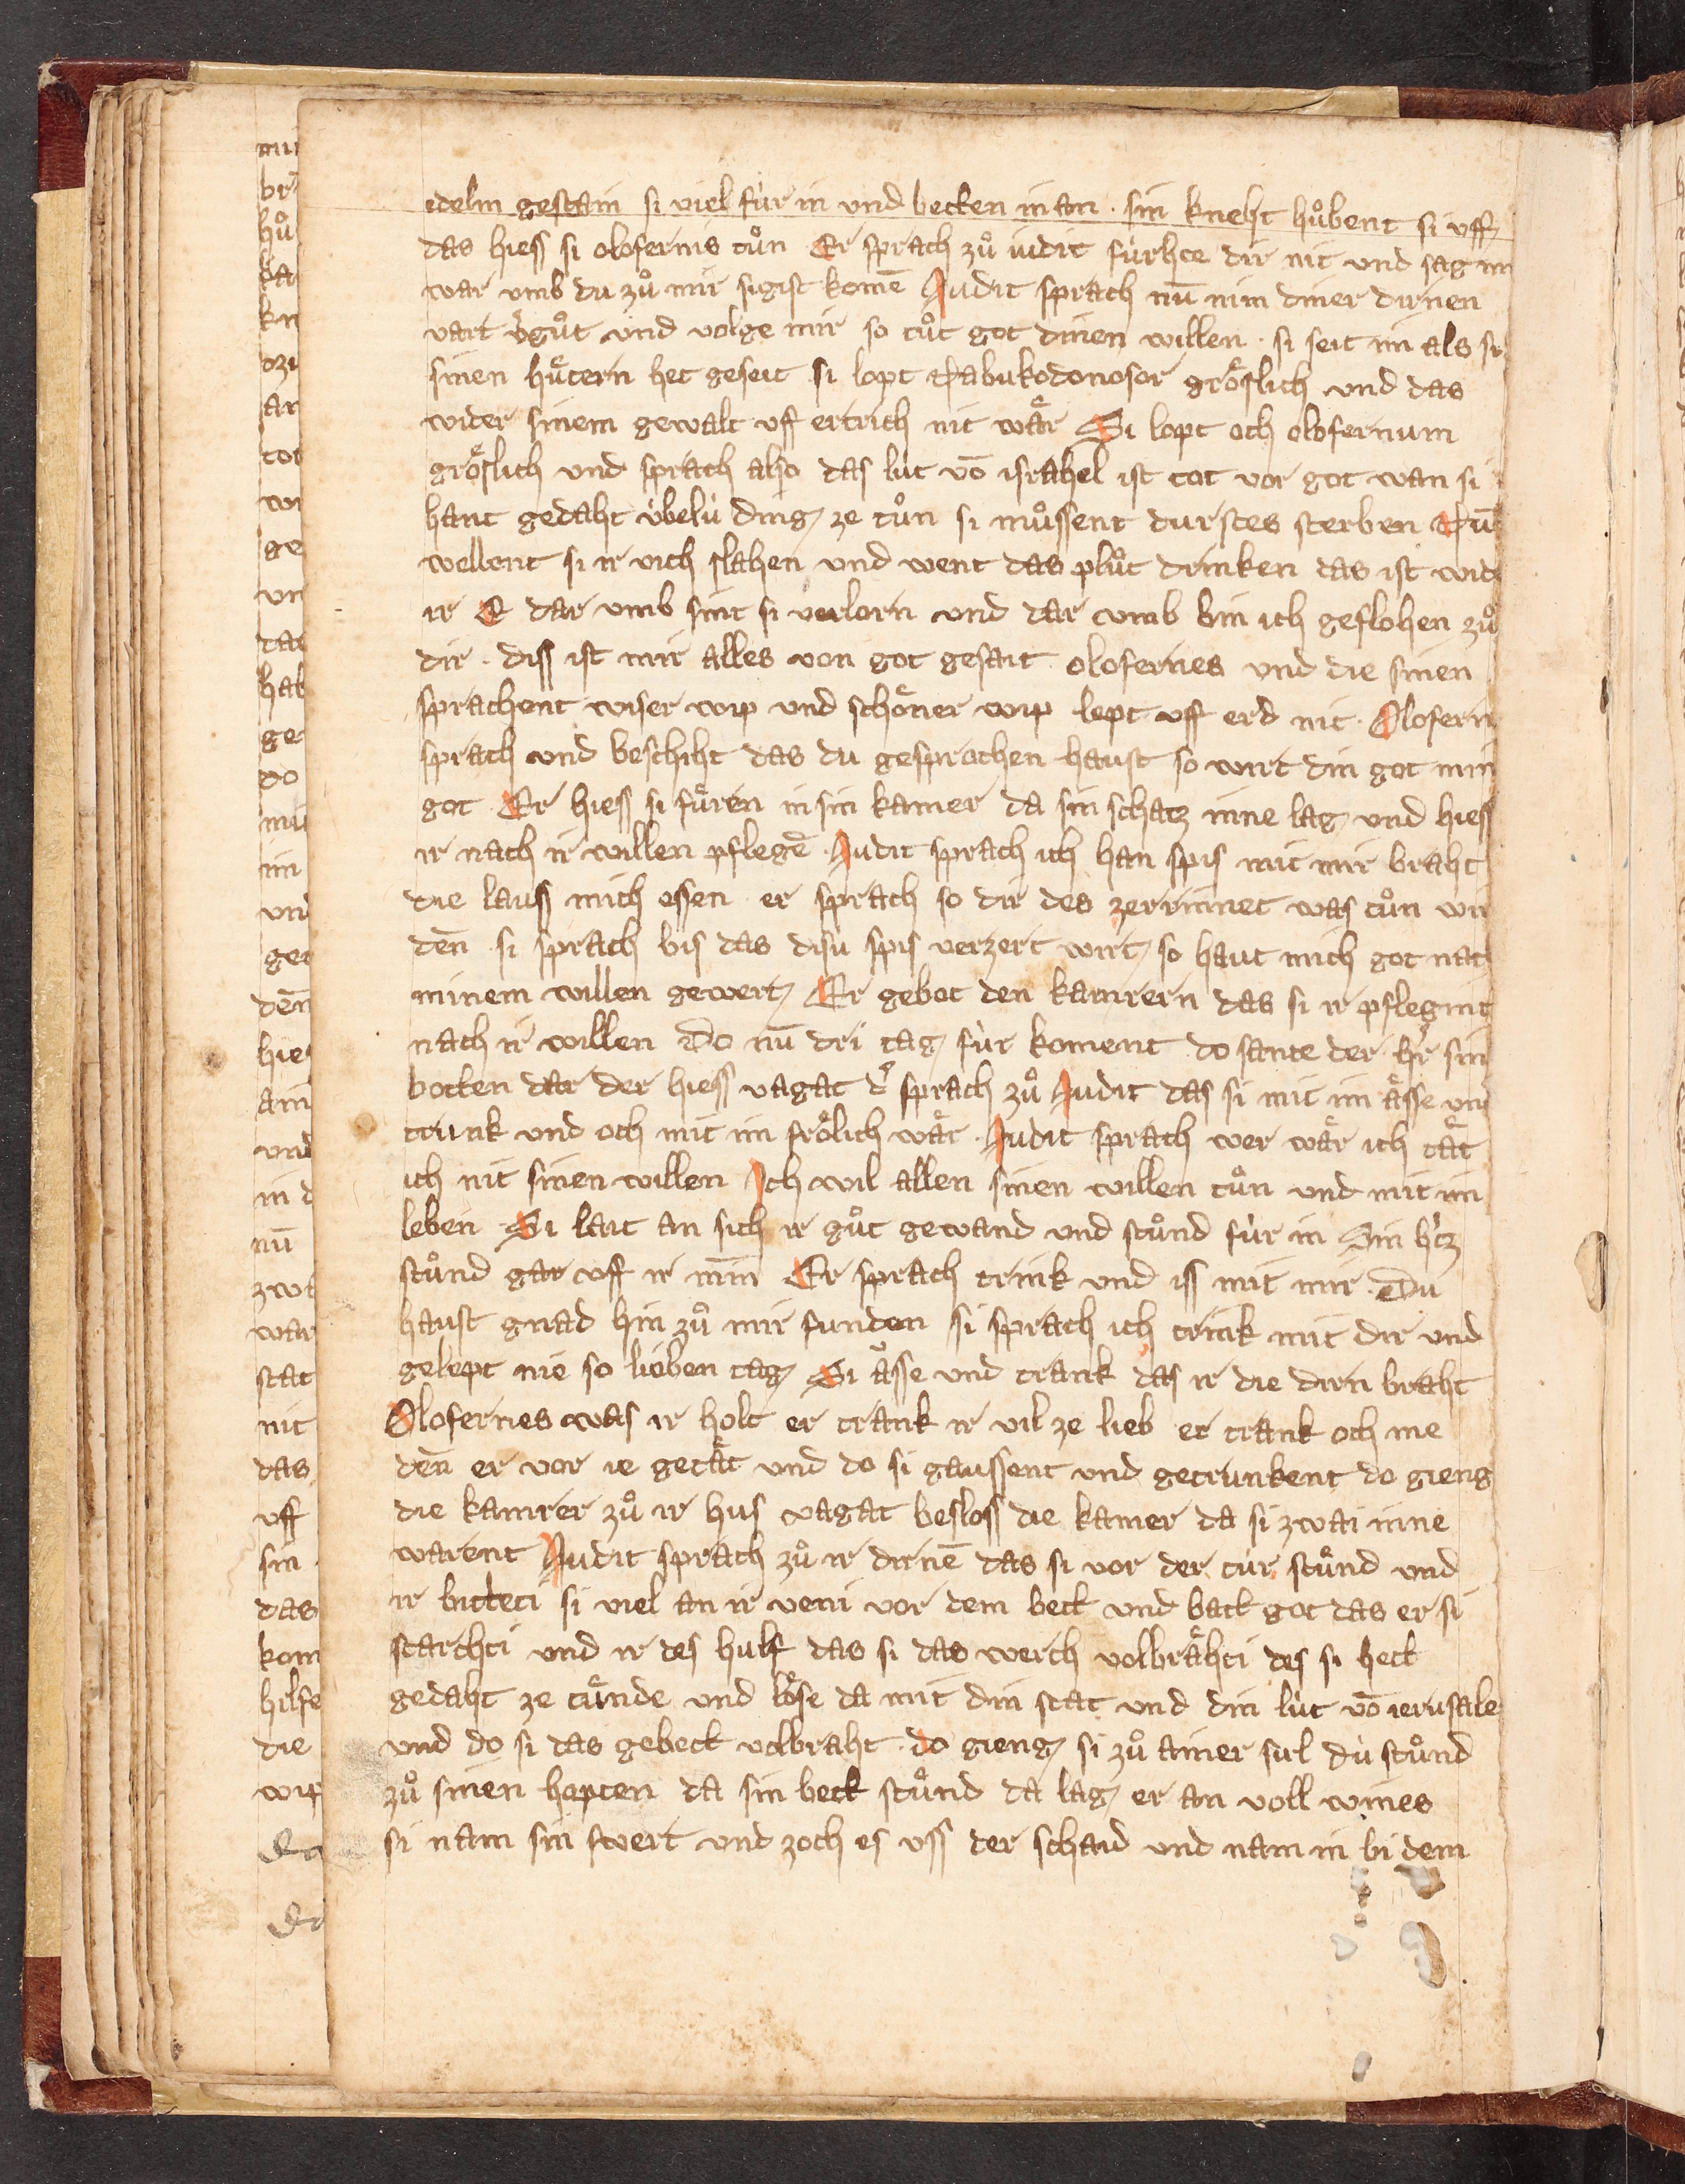 edelm gestain si viel fúr in vnd betten in an · sin kneht hůbent si vff
das hiess si olofernis tůn Er sprach zů iudit fúrhte dir nit vnd sag mi
war vmb du zů mir sigist komē Judit sprach nū nim diner dirnen
vart vͬgůt vnd volge mir so tůt got dinen willen · si seit im als si
sinen hůtern het geseit si lopt Nabukodonosor grôslich vnd das
wider sinem gewalt vff ertrich nit wåͤr Si lopt och olofernum
grôslich vnd sprach also das lút vō israhel ist tot vor got wan si
hant gedaht úbelú ding ze tůn si můssent durstes sterben Nū
wellent si ir vich slahen vnd went das plůt drinken das ist wid
ir E dar vmb sint si verlorn vnd dar vmb bin ich geflohen zů
dir · diss ist mir alles von got gesait olofernes vnd die sinen
sprachent wiser wip vnd schôner wip lept vff erd nit · Olofern
sprach vnd beschiht das du gesprochen haust so wirt din got min
got · Er hiess si fůren in sin kamer da sin schatz inne lag vnd hiess
ir nach ir willen pflegē · Judit sprach ich han spis mit mir braht
die lauss mich essen er sprach so dir des zerrinnet was tůn wir
den̄ · si sprach bis das disú spis verzert wirt so haut mich got nach
minem willen gewert Er gebot den kamrern das si ir pflegint
nach ir willen Do nū dri tag fúr koment do sante der hͬr sin
botten dar der hiess vagat dͬ sprach zů Judit das si mit im åͤsse vnd
trunk vnd och mit im frôlich wåͤr · Judit sprach wer wåͤr ich tåͤt
ich nit sinen willen Ich wil allen sinen willen tůn vnd mit im
leben Si lait an sich ir gůt gewand vnd stůnd fúr in Sin hͬtz
stůnd gar vff ir min̄ Er sprach trink vnd iss mit mir · Du
haust gnad hin zů mir funden si sprach ich trink mit dir vnd
gelept nie so lieben tag Si åͤsse vnd trank das ir die dirn braht
Olofernes was ir holt er trank ir vil ze lieb er trank och me
den̄ er vor ie getåͤt vnd do si gaussent vnd getrunkent do gieng
die kamrer zů ir hus vagat besloss die kamer da si zwai inne
warent Judit sprach zů ir dirnē das si vor der túr stůnd vnd
ir bitteti si viel an ir veni vor dem bett vnd batt got das er si
starchti vnd ir des hulf das si das werch volbråͤhti des si hett
gedaht ze tůnde vnd lôse da mit din stat vnd din lút vō ierusale
vnd do si das gebett volbraht · do gieng si zů ainer sul dú stůnd
zů sinen hopten da sin bett stůnd da lag er an voll wines
si nam sin swert vnd zoch es vss der schaid vnd nam in bi dem